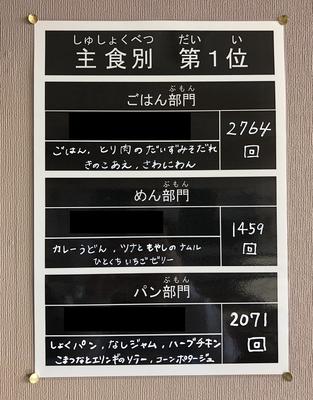 しゅしょくべつ だい い
主食別 第1位
ぶもん
ごはん部門
2764
回
ごはん，とり肉のだいずみそだれ
きのこあえ，さわにわん
ぶもん
めん部門
1459
回
カレーうどん，ツナともやしのナムル
ひとくちいちごゼリー
ぶもん
パン部門
2071
回
しょくパン，なしジャム，ハーブチキン
こまつなとエリンギのソテー，コーンポタージュ